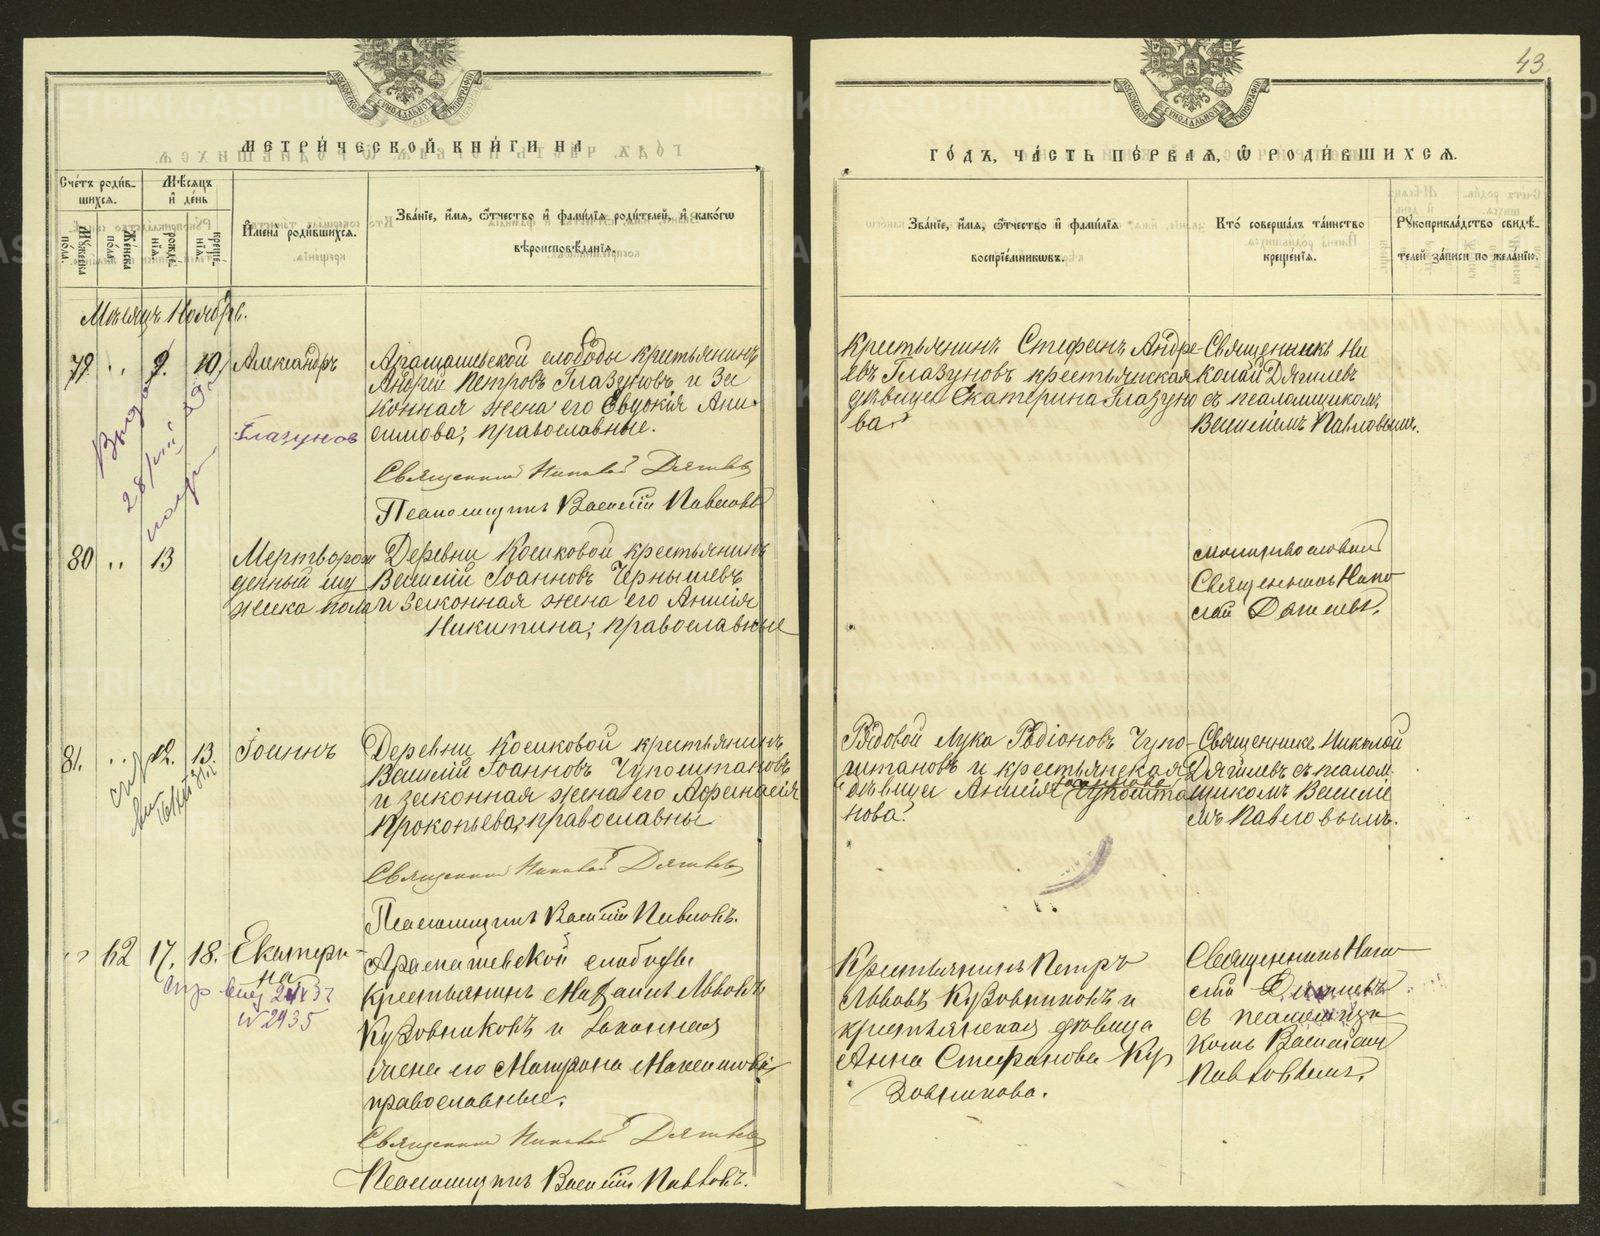 МЕТРИ́ЧЕСКОЙ КНИ́ГИ НА
Сче́тъ роди́в-
шихся.
Мѣ́сяцъ
и́ де́нь
Му́жеска по́ла.
Же́нска по́ла.
рожде́нїя.
креще́нїя.
И҆мена̀ роди́вшихся.
Зва́нїе, и҆́мя, ѻ҆́тчество и҆ фамѝлїя роди́телей, и҆ како́гѡ
вѣроисповѣ́данїя.
Мѣсяцъ Ноябрь.
79 " 9. 10. Александръ
Глазунов
Арамашевской слободы крестьянинъ
Андрей Петровъ Глазуновъ и за
конная жена его Евдокія Ани-
симова; православные.
Священникъ Николай Дягилевъ
Псаломщикъ Василій Павловъ
80 " 13
Мертворож
денный му
жеска пола
Деревни Косиковой крестьянинъ
Василій Іоанновъ Чернышевъ
и законная жена его Анисія
Никитина; православные
81. " 12. 13. Іоаннъ
Деревни Косиковой крестьянинъ
Василій Іоанновъ Чупоштановъ
и законная жена его Афанасія
Прокопьева; православны
Священникъ Николай Дягилевъ
Псаломщикъ Василій Павловъ.
" 62 17. 18. Екатери-
на
2435
Арамашевской слободы
крестьянинъ Михаилъ Львовъ
Кузовниковъ и законная
жена его Матрона Максимова
православные.
Священникъ Николай Дягилевъ
Псаломщикъ Василій Павловъ.
43
ГО́ДЪ, ЧА́СТЬ ПЕ́РВАЯ, Ѡ҆ РОДИ́ВШИХСЯ.
Зва́нїе, и҆́мя, ѻ҆́тчество и҆ фамѝлїя
воспрїе́мниковъ.
Кто̀ соверша́лъ та́инство
креще́нїя.
Рукоприкла́дство свидѣ́-
телей за́писи по жела́нїю.
Крестьянинъ Стефанъ Андре-
евъ Глазуновъ крестьянская
дѣвица Екатерина Глазуно
ва
Священникъ Ни
колай Дягилевъ
съ псаломщикомъ
Василіемъ Павловымъ.
молитвословилъ
Священникъ Нико
лай Дягилевъ.
Рядовой Лука Родіоновъ Чупо-
штановъ и крестьянская
дѣвица Анисія Чупошта
нова.
Священникъ Николай
Дягилевъ съ псалом-
щикомъ Василіе
мъ Павловымъ.
Крестьянинъ Петръ
Львовъ Кузовниковъ и
крестьянская дѣвица
Анна Стефанова Ку
зовникова.
Священникъ Нико
лай Дягилевъ
съ псаломщи
комъ Василіемъ
Павловымъ.
METRIKI.GASO-URAL.RU